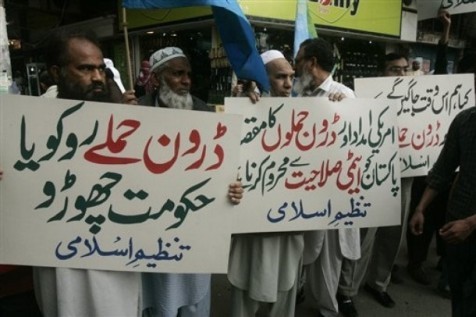 ڈرون حملے روکو یا
حکومت چھوڑو
تنظیمِ اسلامی
امریکی امداد اور ڈرون حملوں کا مقصد
پاکستان کو ایٹمی صلاحیت سے محروم کرنا ہے
تنظیمِ اسلامی
کیا ہم اس وقت جاگیں گے
ڈرون